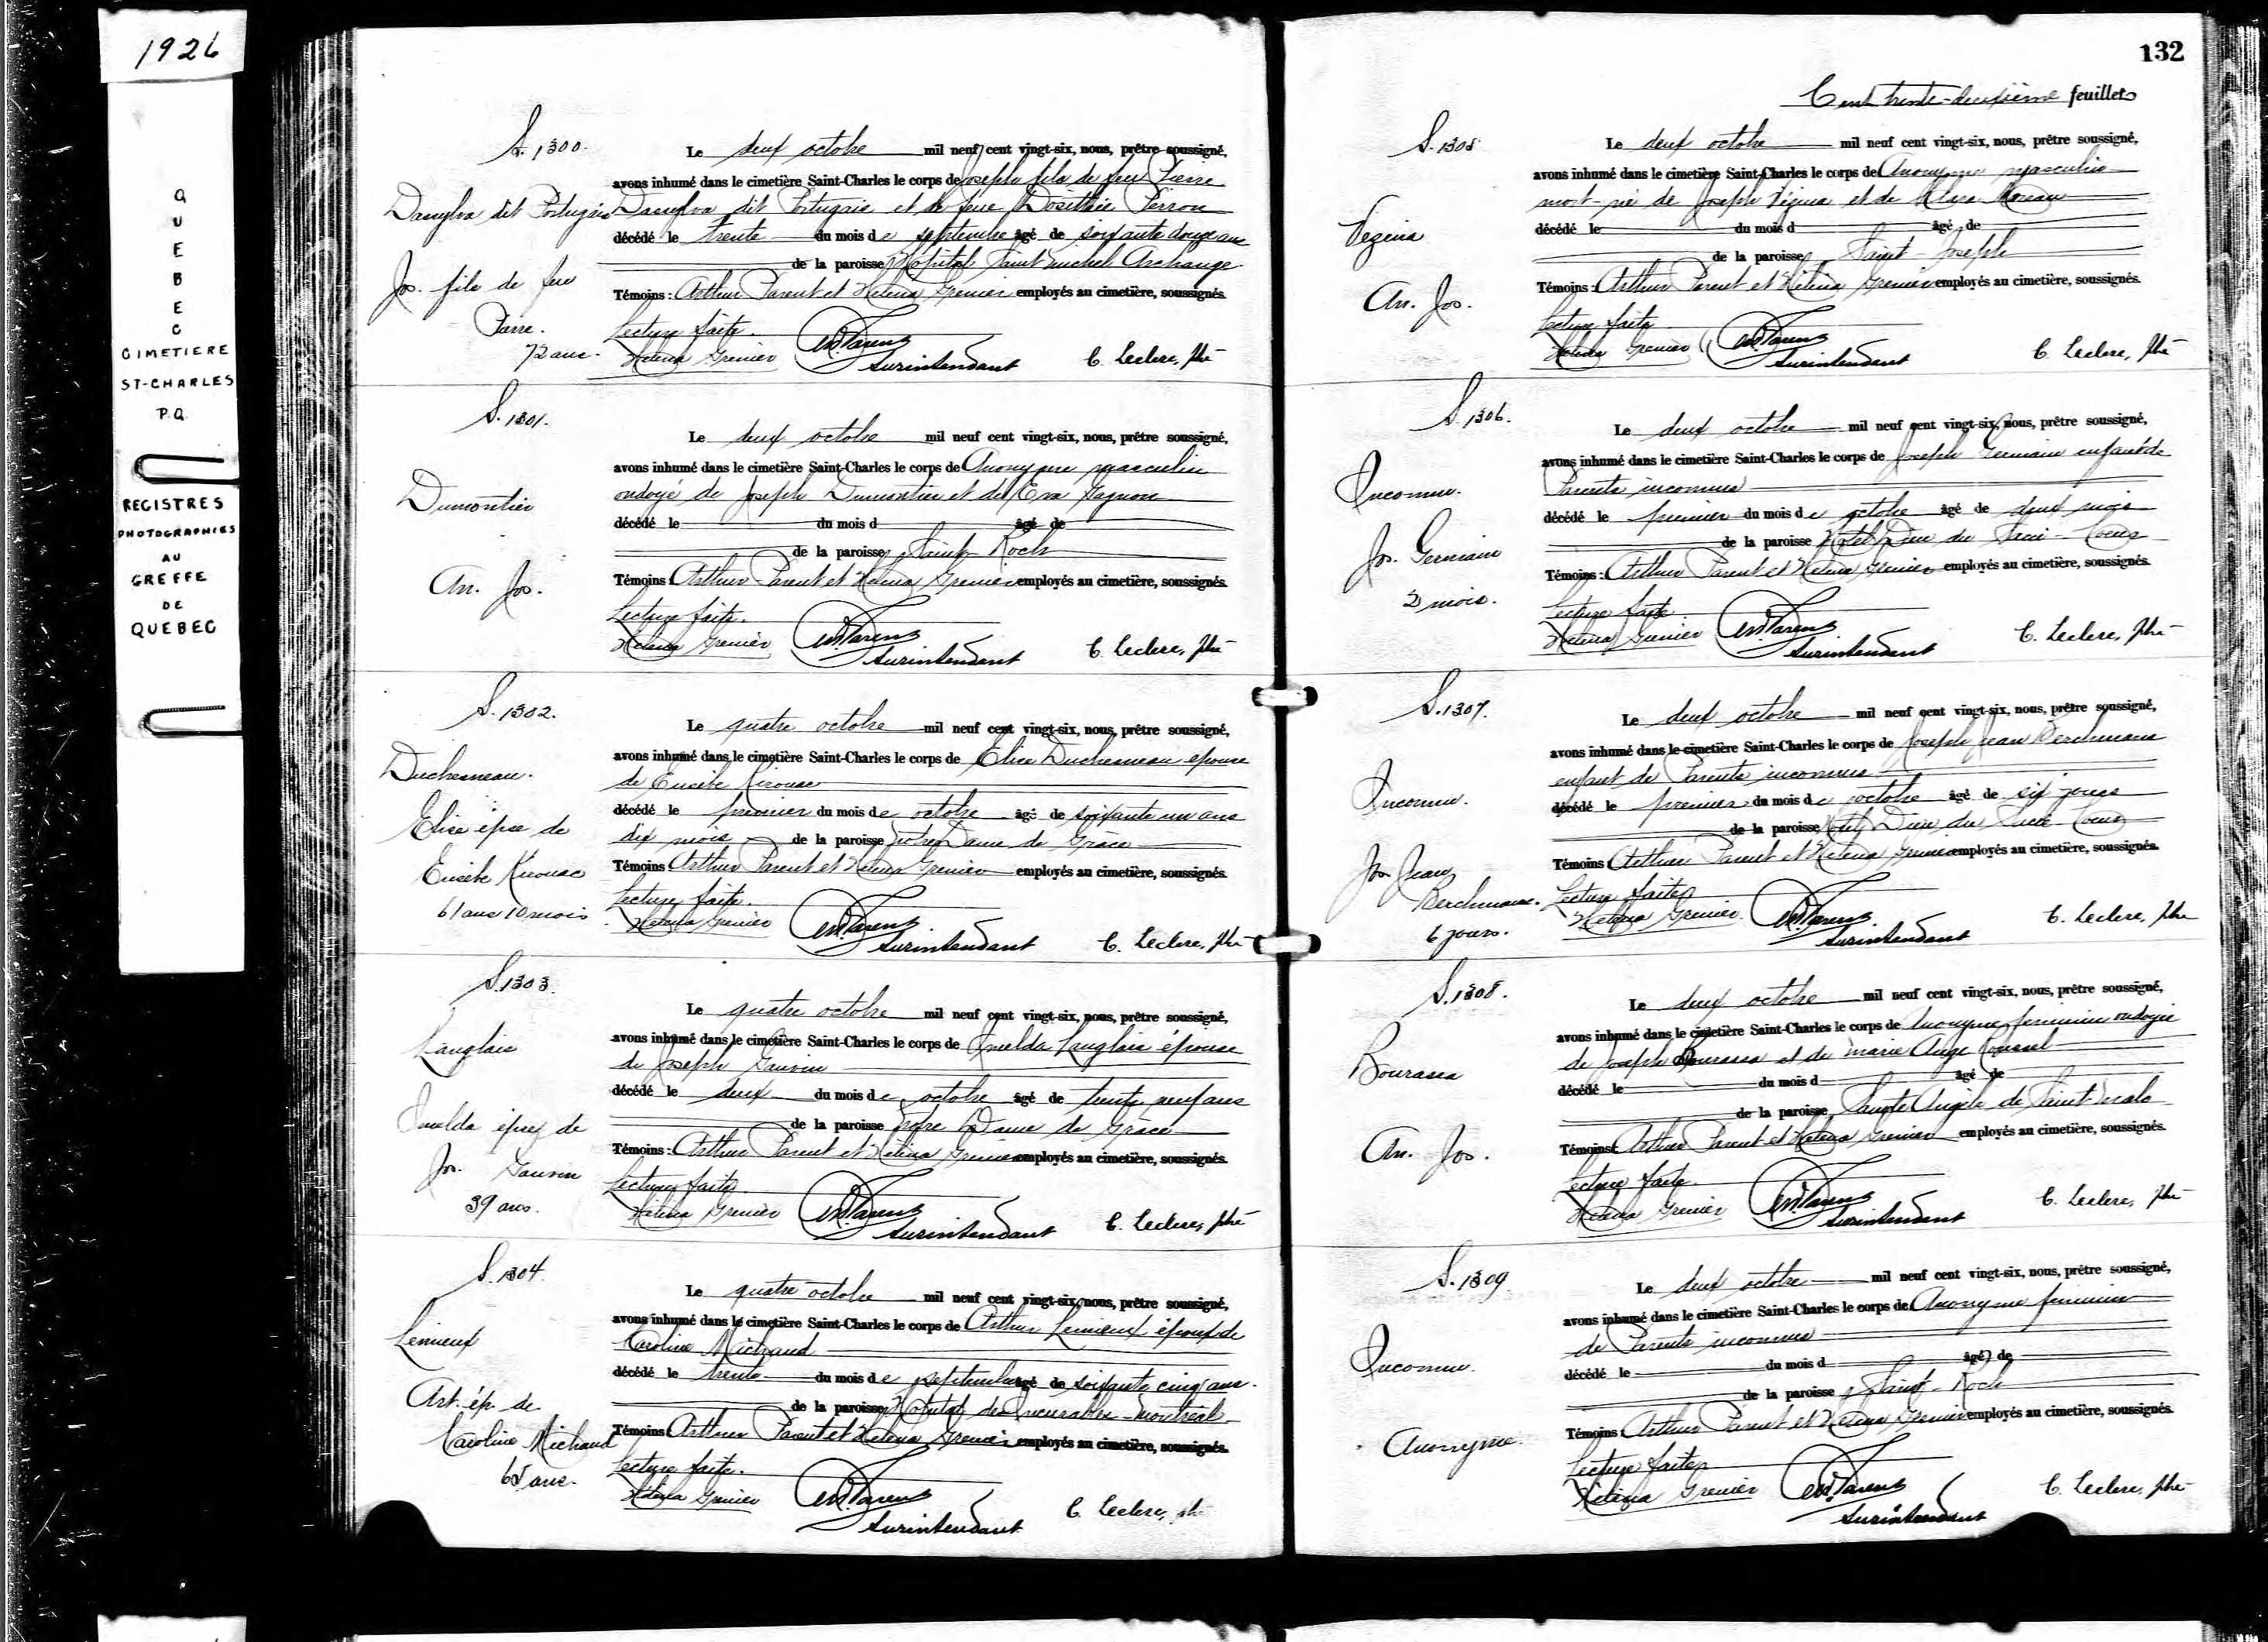 1926
QUEBEC
CIMETIERE
ST-CHARLES
P.Q.
REGISTRES
PHOTOGRAPHIES
AU
GREFFE
DE
QUEBEC
S. 1300.
Danylva dit Portugais
Jos. fils de feu
Pierre.
72 ans.
Le deux octobre mil neuf cent vingt-six, nous, prêtre soussigné,
avons inhumé dans le cimetière Saint-Charles le corps de Joseph fils de feu Pierre
Danylva dit Portugais et de feue Dosithée Perron
décédé le trente du mois de septembre âgé de soixante douze ans
de la paroisse Hôpital Saint Michel Archange
Témoins : Arthur Parent et Helena Grenier employés au cimetière, soussignés.
Lecture faite.
Helena Grenier Parent Surintendant C. Leclerc, ptre
S. 1301.
Dumontier
An. Jos.
Le deux octobre mil neuf cent vingt-six, nous, prêtre soussigné,
avons inhumé dans le cimetière Saint-Charles le corps de Anonyme masculin
ondoyé de Joseph Dumontier et de Eva Gagnon
décédé le du mois d âgé de
de la paroisse Saint Roch
Témoins : Arthur Parent et Helena Grenier employés au cimetière, soussignés.
Lecture faite.
Helena Grenier Parent Surintendant C. Leclerc, ptre
S. 1302.
Duchesneau.
Elise épse de
Eusèbe Kirouac
61 ans 10 mois
Le quatre octobre mil neuf cent vingt-six, nous, prêtre soussigné,
avons inhumé dans le cimetière Saint-Charles le corps de Elise Duchesneau epouse
de Eusèbe Kirouac
décédé le premier du mois de octobre âgé de soixante un ans
dix mois de la paroisse Notre Dame de Grâce
Témoins : Arthur Parent et Helena Grenier employés au cimetière, soussignés.
Lecture faite.
Helena Grenier Parent Surintendant C. Leclerc, ptre
S. 1303.
Langlais
Imelda épse de
Jos. Gauvin
39 ans.
Le quatre octobre mil neuf cent vingt-six, nous, prêtre soussigné,
avons inhumé dans le cimetière Saint-Charles le corps de Imelda Langlais épouse
de Joseph Gauvin
décédé le deux du mois de octobre âgé de trente neuf ans
de la paroisse Notre Dame de Grâce
Témoins : Arthur Parent et Helena Grenier employés au cimetière, soussignés.
Lecture faite.
Helena Grenier Parent Surintendant C. Leclerc, ptre
S. 1304.
Lemieux
Art. ép. de
Caroline Michaud
65 ans.
Le quatre octobre mil neuf cent vingt-six, nous, prêtre soussigné,
avons inhumé dans le cimetière Saint-Charles le corps de Arthur Lemieux époux de
Caroline Michaud
décédé le trente du mois de septembre âgé de soixante cinq ans.
de la paroisse Hôpital des Incurables Montréal
Témoins : Arthur Parent et Helena Grenier employés au cimetière, soussignés.
Lecture faite.
Helena Grenier Parent Surintendant C. Leclerc, ptre
132
Cent trente-deuxième feuillet
S. 1305
Vezina
An. Jos.
Le deux octobre mil neuf cent vingt-six, nous, prêtre soussigné,
avons inhumé dans le cimetière Saint-Charles le corps de Anonyme masculin
mort-né de Joseph Vézina et de Clara Moreau
décédé le du mois d âgé de
de la paroisse Saint-Joseph
Témoins : Arthur Parent et Helena Grenier employés au cimetière, soussignés.
Lecture faite
Helena Grenier Parent Surintendant C. Leclerc, ptre
S. 1306.
Inconnu.
Jos. Germain
2 mois.
Le deux octobre mil neuf cent vingt-six, nous, prêtre soussigné,
avons inhumé dans le cimetière Saint-Charles le corps de Joseph Germain enfant de
Parents inconnus
décédé le premier du mois de octobre âgé de deux mois
de la paroisse Hotel Dieu du Sacré-Coeur
Témoins : Arthur Parent et Helena Grenier employés au cimetière, soussignés.
Lecture faite
Helena Grenier Parent Surintendant C. Leclerc, ptre
S. 1307.
Inconnu.
Jos Jean
Berchmans.
6 jours.
Le deux octobre mil neuf cent vingt-six, nous, prêtre soussigné,
avons inhumé dans le cimetière Saint-Charles le corps de Joseph Jean Berchmans
enfant de Parents inconnus
décédé le premier du mois de octobre âgé de six jours
de la paroisse Hotel Dieu du Sacré-Coeur
Témoins : Arthur Parent et Helena Grenier employés au cimetière, soussignés.
Lecture faite
Helena Grenier. Parent Surintendant C. Leclerc, ptre
S. 1308.
Bourassa
An. Jos.
Le deux octobre mil neuf cent vingt-six, nous, prêtre soussigné,
avons inhumé dans le cimetière Saint-Charles le corps de Anonyme feminin ondoyée
de Joseph Bourassa et de Marie Ange Roussel
décédé le du mois d âgé de
de la paroisse Sainte Angèle de Saint-Malo
Témoins : Arthur Parent et Helena Grenier employés au cimetière, soussignés.
Lecture faite.
Helena Grenier Parent Surintendant C. Leclerc, ptre
S. 1309.
Inconnu.
Anonyme.
Le deux octobre mil neuf cent vingt-six, nous, prêtre soussigné,
avons inhumé dans le cimetière Saint-Charles le corps de Anonyme feminin
de Parents inconnus
décédé le du mois d âgé de
de la paroisse Saint-Roch
Témoins : Arthur Parent et Helena Grenier employés au cimetière, soussignés.
Lecture faite
Helena Grenier Parent Surintendant C. Leclerc, ptre